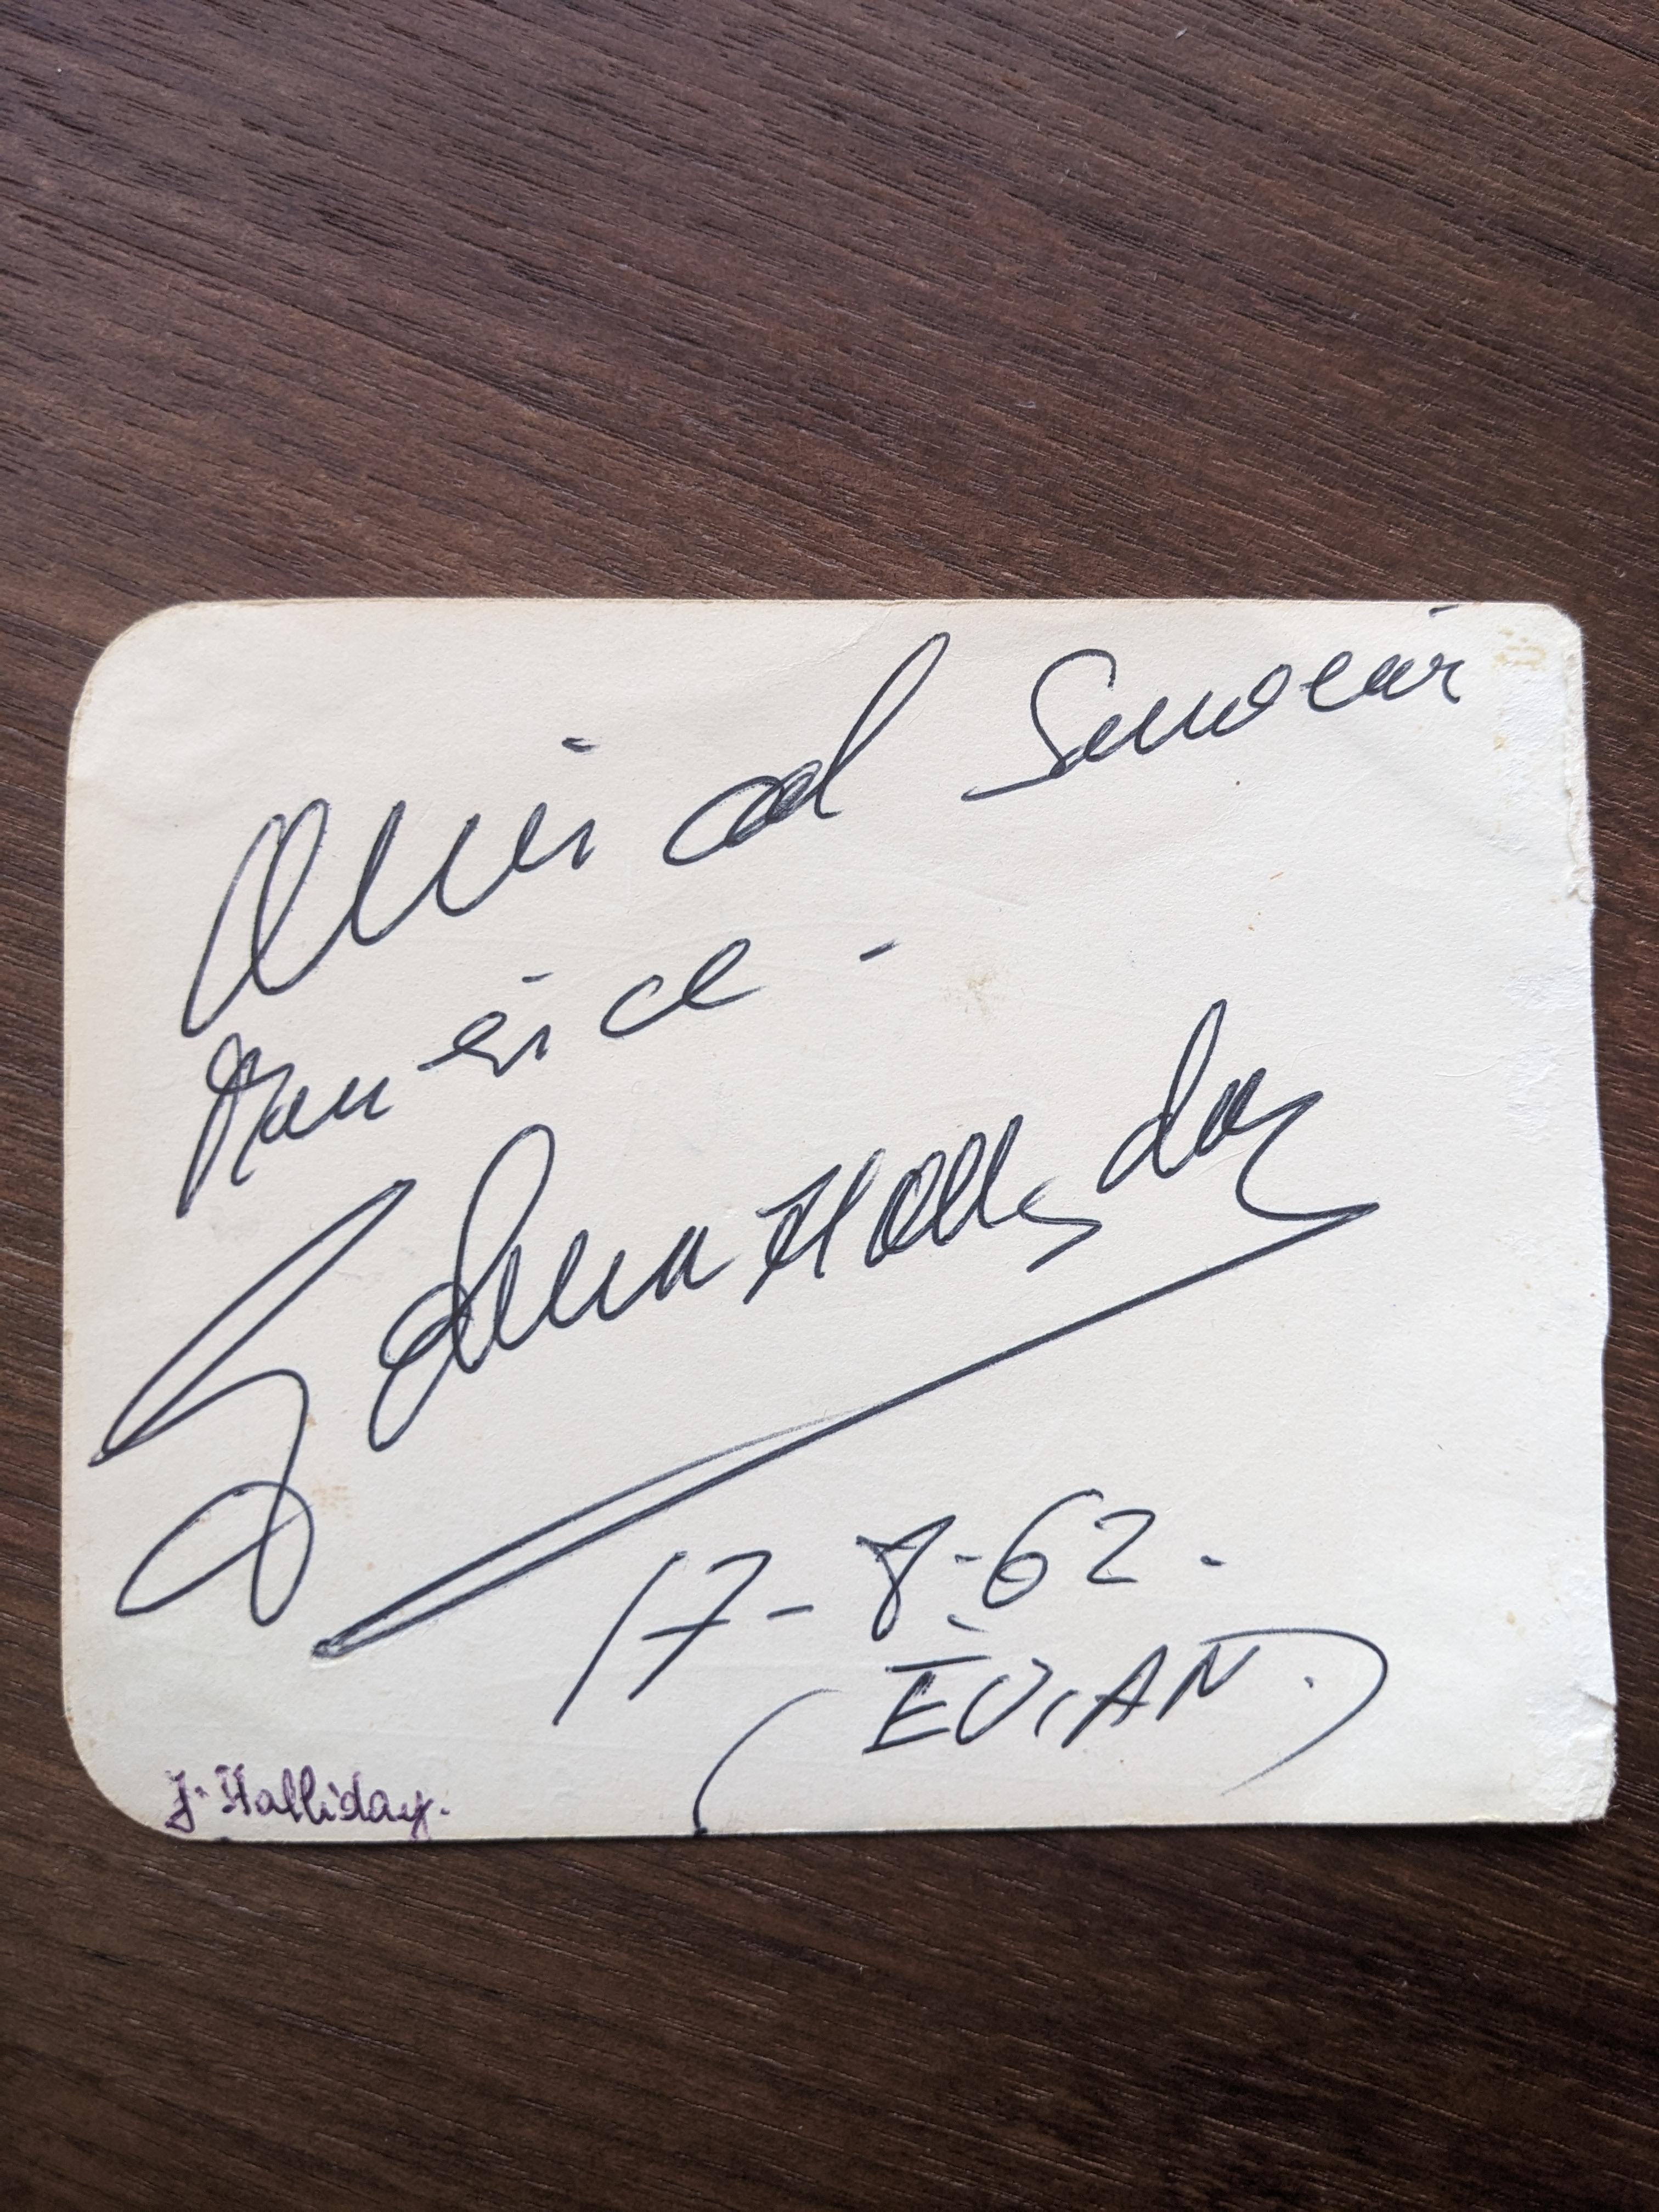 Amical Souvenir
Maurice -
Johnny Hallyday
17-8-62.
(EVIAN.)
J. Halliday.